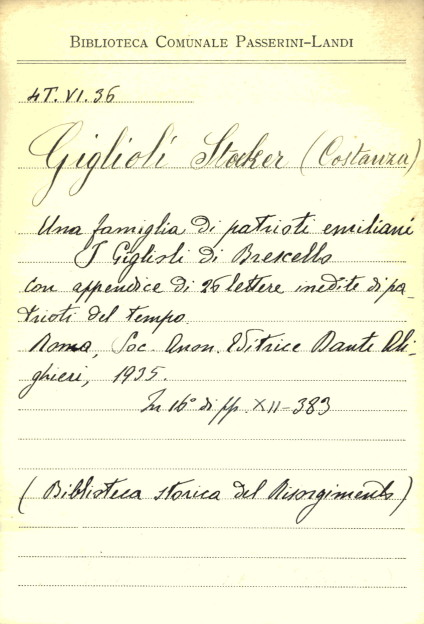 BIBLIOTECA COMUNALE PASSERINI-LANDI
4T. VI. 36
Giglioli Stoker (Costanza)
Una famiglia di patrioti emiliani
I Giglioli di Brescello
con appendice di 26 lettere inedite di pa-
trioti del tempo.
Roma, Soc. Anon. Editrice Dante Ali-
ghieri, 1935.
In 16° di pp. XII-383
(Biblioteca storica del Risorgimento)